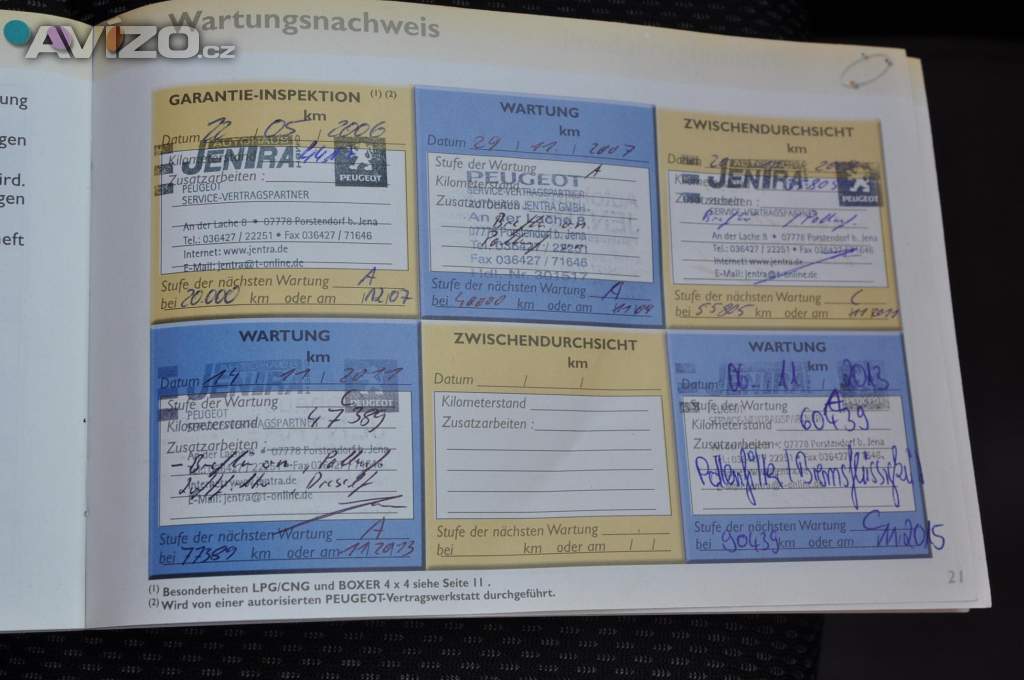 AVÍZO.cz
Wartungsnachweis
ung
gen
ird.
gen
eft
GARANTIE-INSPEKTION (1) (2)
km
Datum 22 / 05 / 2006
Kilometerstand
Zusatzarbeiten :
JENTRA
PEUGEOT
PEUGEOT
SERVICE-VERTRAGSPARTNER
An der Lache 8 • 07778 Porstendorf b. Jena
Tel.: 036427 / 22251 • Fax 036427 / 71646
Internet: www.jentra.de
E-Mail: jentra@t-online.de
Stufe der nächsten Wartung A
bei 20.000 km oder am 12/07
WARTUNG
km
Datum 29 / 11 / 2007
Stufe der Wartung A
Kilometerstand
Zusatzarbeiten
PEUGEOT
SERVICE-VERTRAGSPARTNER
AUTOHAUS JENTRA GMBH
An der Lache 8
07778 Porstendorf b. Jena
Tel. 036427 / 22251
Fax 036427 / 71646
Hdl. Nr. 301517
Stufe der nächsten Wartung A
bei 40000 km oder am 11/09
ZWISCHENDURCHSICHT
km
JENTRA
PEUGEOT
SERVICE-VERTRAGSPARTNER
An der Lache 8 • 07778 Porstendorf b. Jena
Tel.: 036427 / 22251 • Fax 036427 / 71646
Internet: www.jentra.de
E-Mail: jentra@t-online.de
Stufe der nächsten Wartung C
bei 55805 km oder am 11 2011
WARTUNG
km
Datum 14 / 11 / 2011
JENTRA
PEUGEOT
Stufe der Wartung C
PEUGEOT
Kilometerstand 47389
Zusatzarbeiten :
An der Lache 8 • 07778 Porstendorf b. Jena
E-Mail: jentra@t-online.de
Stufe der nächsten Wartung A
bei 77389 km oder am 11.2013
ZWISCHENDURCHSICHT
km
Datum / /
Kilometerstand
Zusatzarbeiten :
Stufe der nächsten Wartung
bei km oder am / /
WARTUNG
km
Datum 06. 11 / 2013
Stufe der Wartung A
Kilometerstand 60439
Zusatzarbeiten
07778 Porstendorf b. Jena
Pollenfilter Bremsflüssigkeit
Stufe der nächsten Wartung C
bei 90439 km oder am 11.2015
(1) Besonderheiten LPG/CNG und BOXER 4 x 4 siehe Seite 11 .
(2) Wird von einer autorisierten PEUGEOT-Vertragswerkstatt durchgeführt.
21